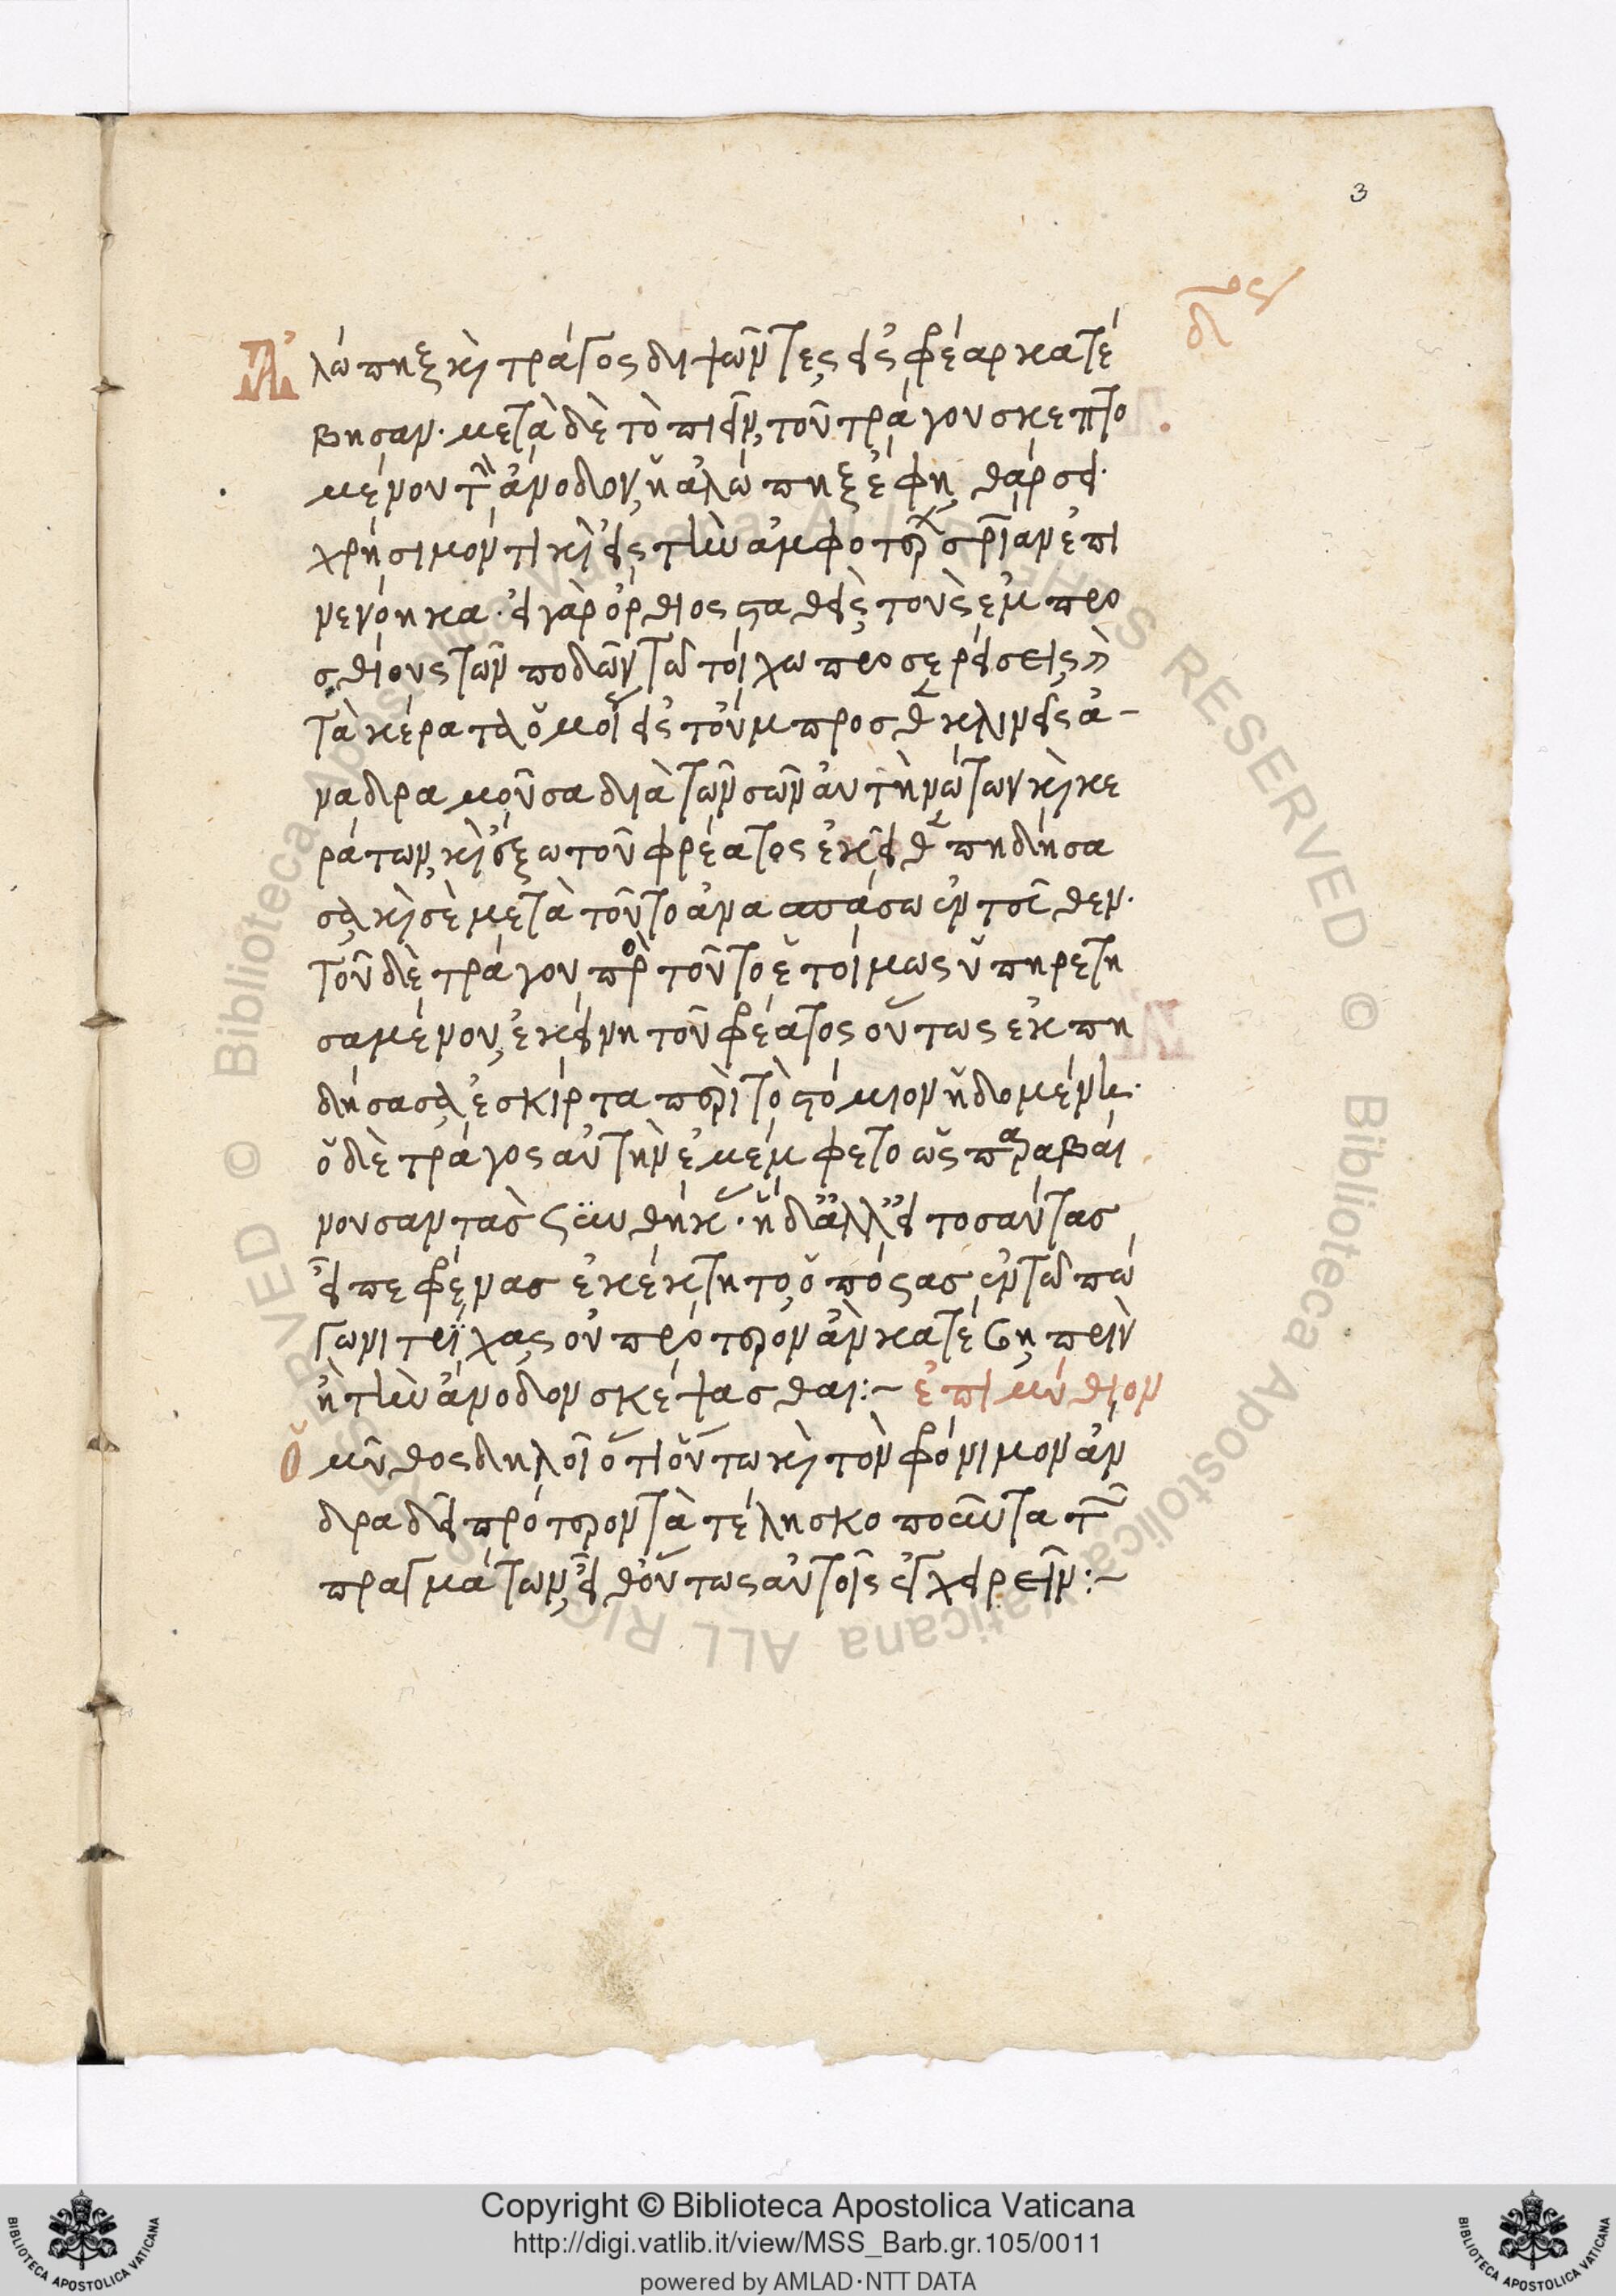 3
δος
Ἀλώπηξ κὶ τράγος διψῶντες εἰς φρέαρ κατέ
βησαν· μετὰ δὲ τὸ πιεῖν, τοῦ τράγου σκεπτο
μένου τὴν ἄνοδον, ἡ ἀλώπηξ ἔφη, θάρσει·
χρήσιμόν τι κὶ εἰς τὴν ἀμφοτέρων σωτηρίαν ἐπι
νενόηκα· εἰ γὰρ ὄρθιος σταθεὶς τοὺς ἐμπρο
σθίους τῶν ποδῶν τῶ τοίχω προσερείσεις
τὰ κέρατα ὁμοίως εἰς τοὔμπροσθεν κλινεῖς ἀ-
ναδραμοῦσα διὰ τῶν σῶν αὐτὴ νώτων κὶ κε
ράτων, κὶ ἔξω τοῦ φρέατος ἐκεῖθεν πηδήσα
σα, κὶ σὲ μετὰ τοῦτο ἀνασπάσω ἐντεῦθεν·
τοῦ δὲ τράγου πρὸς τοῦτο ἑτοίμως ὑπηρετη
σαμένου, ἐκείνη τοῦ φρέατος οὕτως ἐκπη
δήσασα, ἐσκίρτα περὶ τὸ στόμιον ἡδομένη·
ὁ δὲ τράγος αὐτὴν ἐμέμφετο ὡς παραβαί
νουσαν τὰς συνθήκας· ἡ δὲ ἀλλ' εἰ τοσαύτας
εἶπε φρένας ἐκέκτητο, ὁπόσας ἐν τῶ πώ
γωνι τρίχας, οὐ πρότερον ἂν κατέβης πρὶν
ἢ τὴν ἄνοδον σκέψασθαι:~ ἐπιμύθιον
Ὁ μῦθος δηλοῖ ὅτι οὕτω κὶ τὸν φρόνιμον ἄν
δρα δεῖ πρότερον τὰ τέλη σκοποῦντα τῶν
πραγμάτων, εἶθ' οὕτως αὐτοῖς ἐγχειρεῖν:~
Copyright © Biblioteca Apostolica Vaticana
http://digi.vatlib.it/view/MSS_Barb.gr.105/0011
powered by AMLAD·NTT DATA